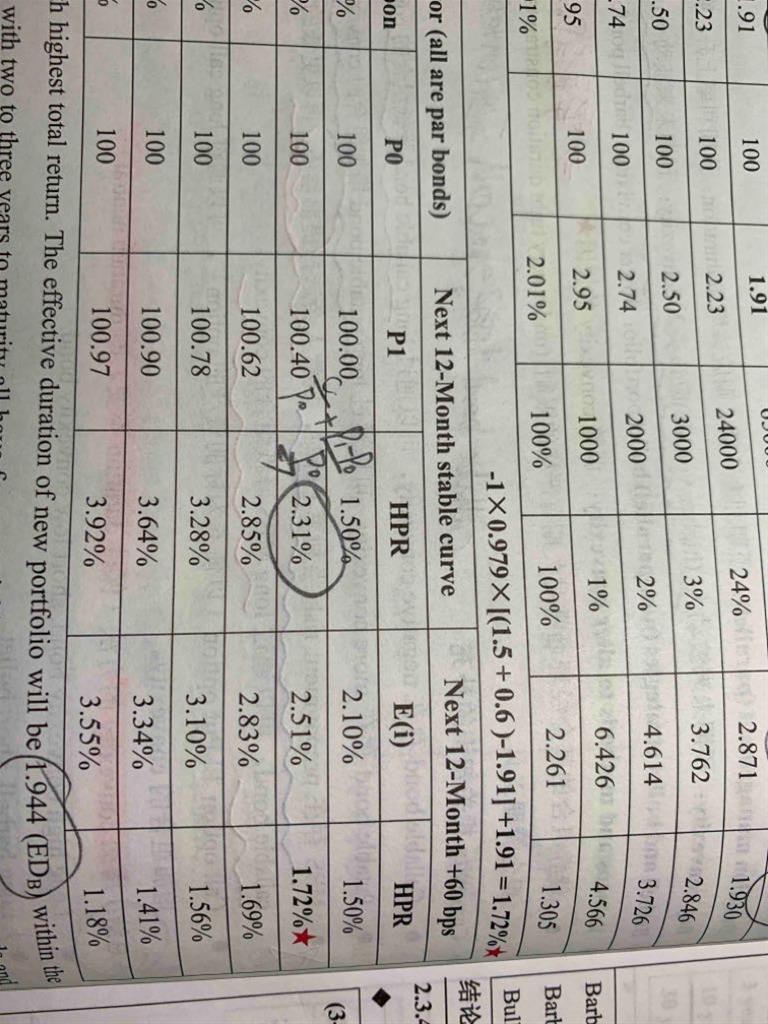 .91 100 1.91
.23 100 2.23 24000 24% 2.871 1.930
.50 100 2.50 3000 3% 3.762 2.846
.74 100 2.74 2000 2% 4.614 3.726
.95 100 2.95 1000 1% 6.426 4.566
1% 2.01% 100% 100% 2.261 1.305
-1×0.979×[(1.5+0.6)-1.91]+1.91=1.72%★
or (all are par bonds) Next 12-Month stable curve Next 12-Month +60 bps
on P0 P1 HPR E(i) HPR
% 100 100.00 1.50% 2.10% 1.50%
% 100 100.40 2.31% 2.51% 1.72%★
% 100 100.62 2.85% 2.83% 1.69%
% 100 100.78 3.28% 3.10% 1.56%
% 100 100.90 3.64% 3.34% 1.41%
% 100 100.97 3.92% 3.55% 1.18%
h highest total return. The effective duration of new portfolio will be 1.944 (EDB) within the
with two to three years to maturity all have
Barb
Barb
Bul
结论
2.3.4
◆
(3-